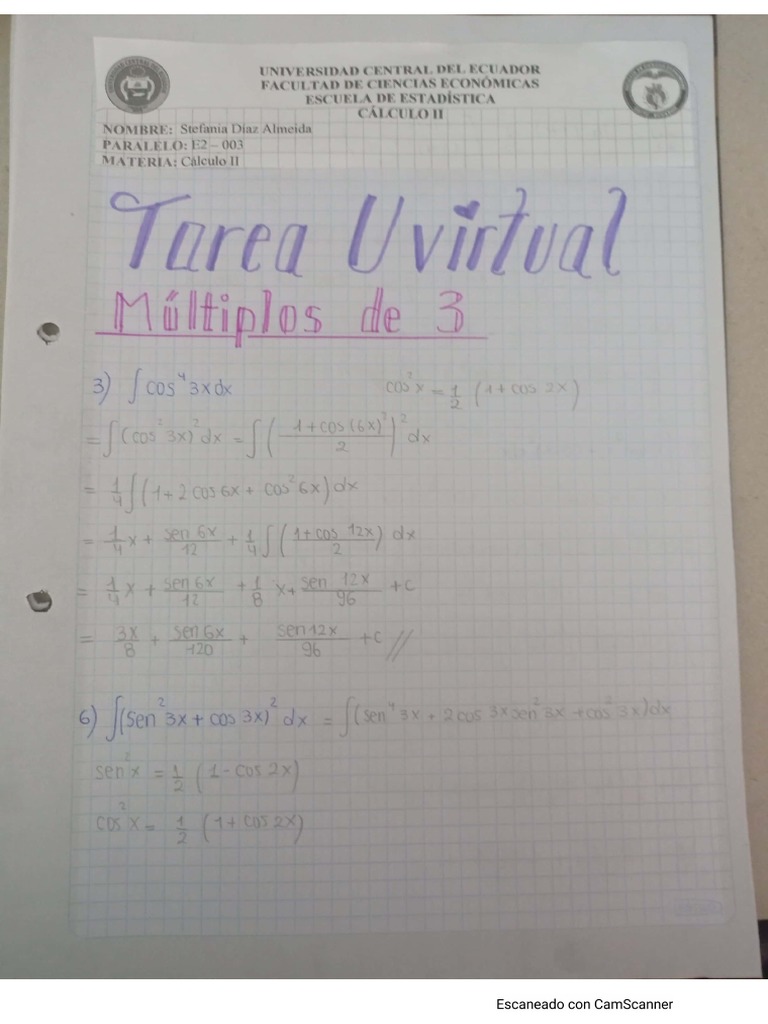 UNIVERSIDAD CENTRAL DEL ECUADOR
FACULTAD DE CIENCIAS ECONÓMICAS
ESCUELA DE ESTADÍSTICA
CÁLCULO II
NOMBRE: Stefania Díaz Almeida
PARALELO: E2 – 003
MATERIA: Cálculo II
Tarea Uvirtual
Múltiplos de 3
3) ∫ cos⁴ 3x dx    cos²x = 1/2 (1 + cos 2x)
= ∫ (cos² 3x)² dx = ∫ ( (1 + cos (6x)²)/2 )² dx
= 1/4 ∫ (1 + 2 cos 6x + cos² 6x) dx
= 1/4 x + sen 6x/12 + 1/4 ∫ ( (1 + cos 12x)/2 ) dx
= 1/4 x + sen 6x/12 + 1/8 x + sen 12x/96 + c
= 3x/8 + sen 6x/120 + sen 12x/96 + c //
6) ∫ (sen² 3x + cos 3x)² dx = ∫ (sen⁴ 3x + 2 cos 3x sen² 3x + cos² 3x) dx
sen² x = 1/2 (1 - cos 2x)
cos² x = 1/2 (1 + cos 2x)
Escaneado con CamScanner